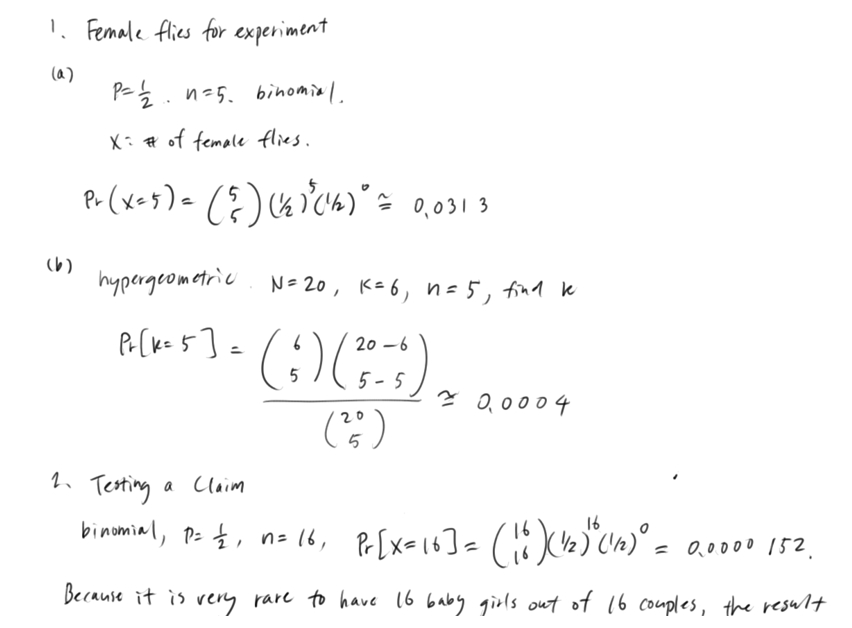 1. Female flies for experiment
(a)
P=1/2. n=5. binomial.
X: # of female flies.
Pr(X=5) = (5 5)(1/2)^5(1/2)^0 ≅ 0.0313
(b)
hypergeometric. N=20, K=6, n=5, find k
Pr[k=5] = (6 5)(20-6 5-5) / (20 5) ≅ 0.0004
2. Testing a Claim
binomial, P=1/2, n=16, Pr[X=16] = (16 16)(1/2)^16(1/2)^0 = 0.0000152.
Because it is very rare to have 16 baby girls out of 16 couples, the result